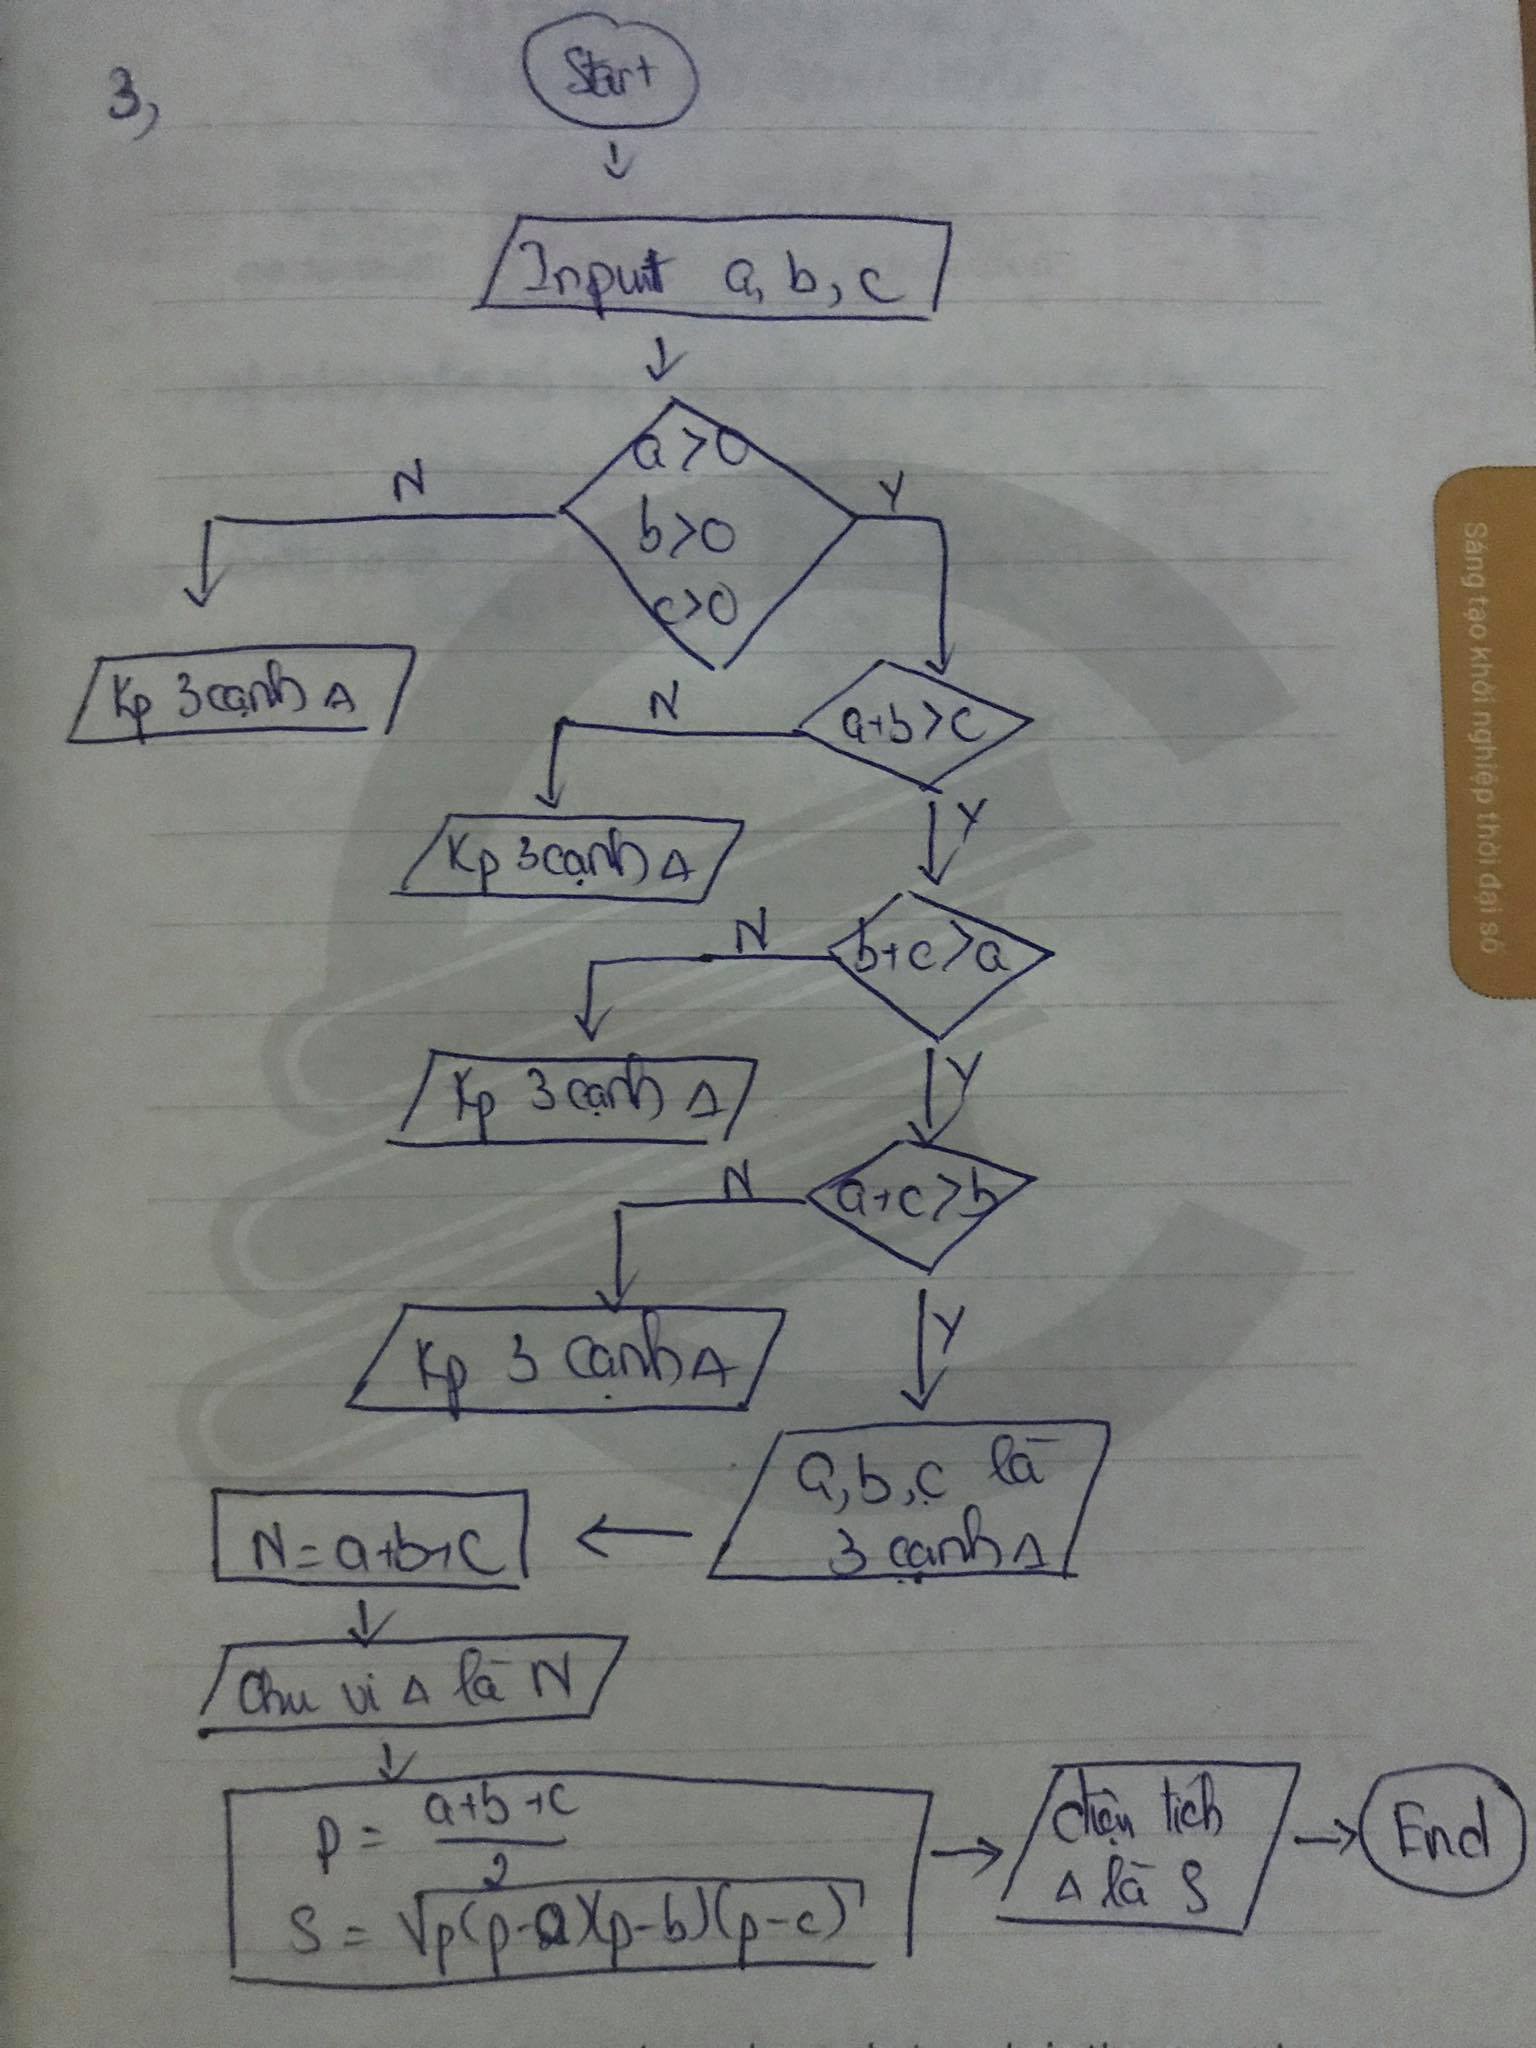 3,
Start
Input a, b, c
a>0
b>0
c>0
N
Y
Kp 3 cạnh Δ
a+b>c
N
Y
Kp 3 cạnh Δ
b+c>a
N
Y
Kp 3 cạnh Δ
a+c>b
N
Y
Kp 3 cạnh Δ
a, b, c là
3 cạnh Δ
N = a+b+c
Chu vi Δ là N
p = a+b+c
2
S = √p(p-a)(p-b)(p-c)
diện tích
Δ là S
End
Sáng tạo khởi nghiệp thời đại số